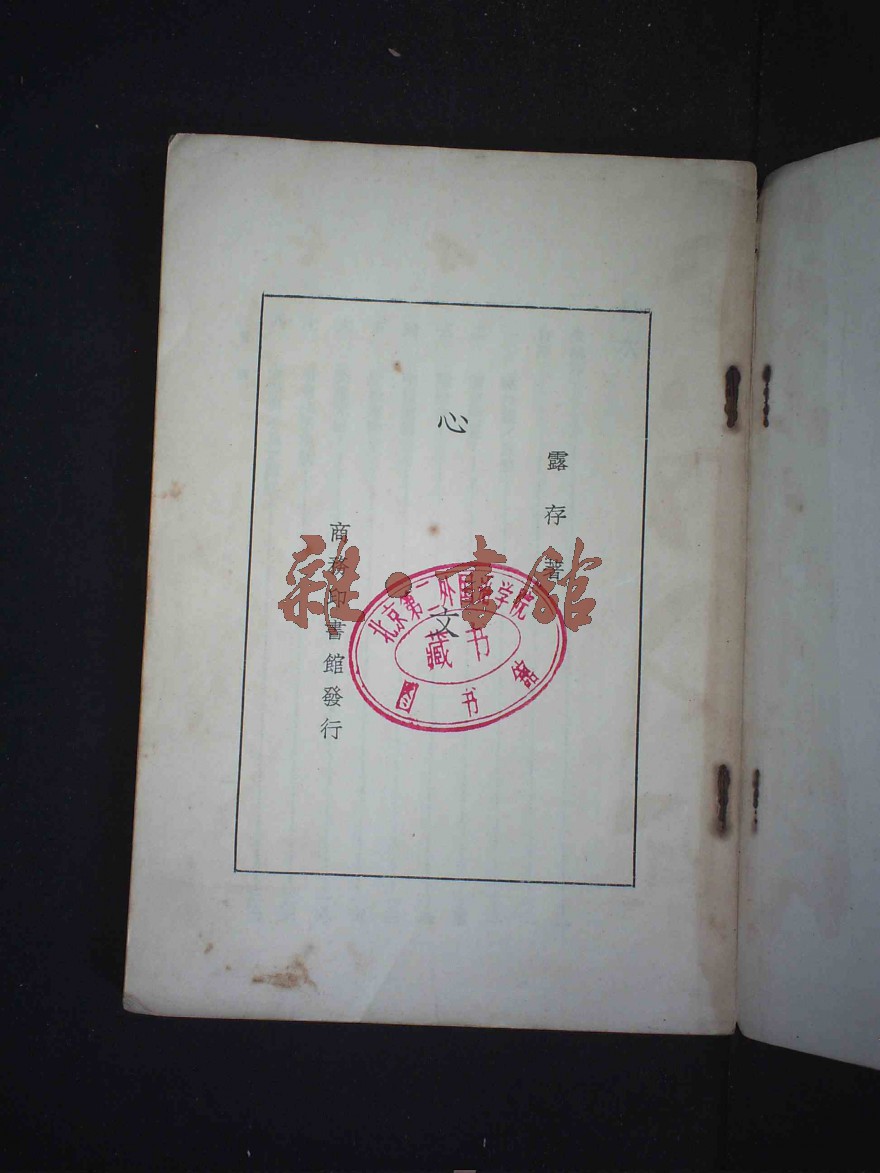 露存著
心文
商務印書館發行
雜·書館
北京第二外国语学院
藏书
图书馆